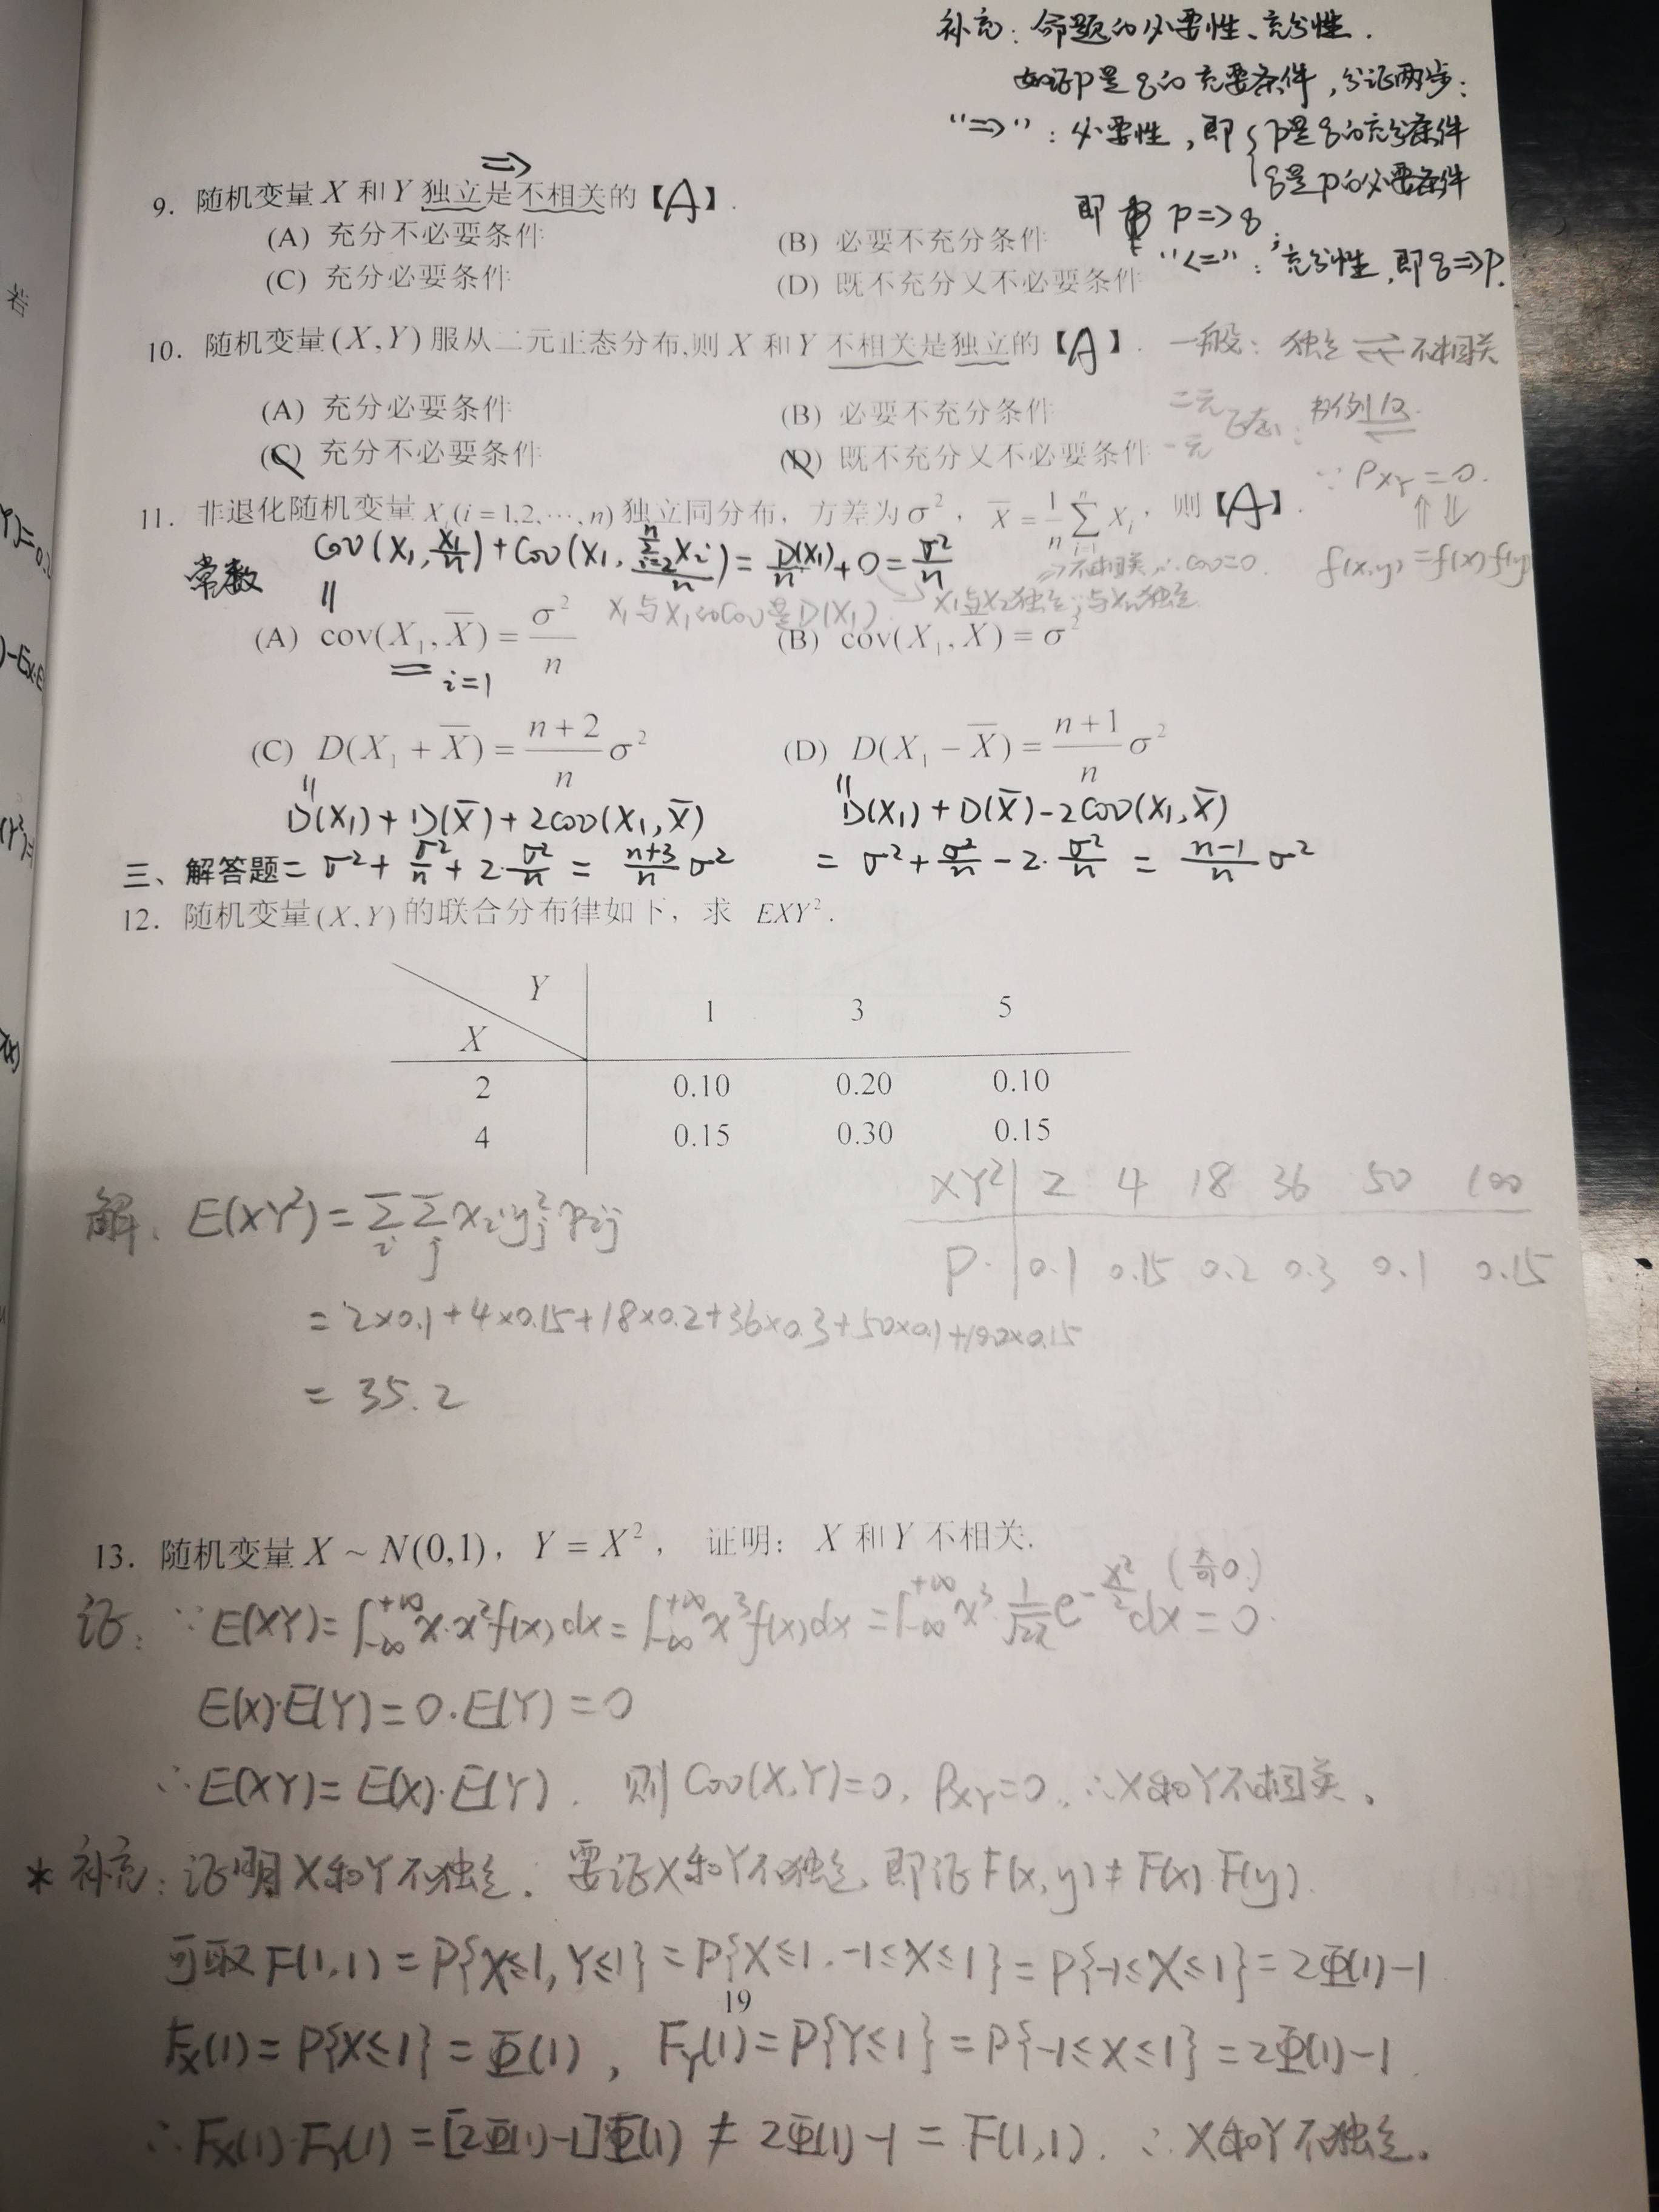 补充：命题的必要性、充分性．
如证P是q的充要条件，分证两步：
“=>”：必要性，即{P是q的充分条件
q是P的必要条件
即 P=>q；
“<=”：充分性，即q=>P.
=>
9. 随机变量 X 和 Y 独立是不相关的【A】.
(A) 充分不必要条件 (B) 必要不充分条件
(C) 充分必要条件 (D) 既不充分又不必要条件
10. 随机变量(X,Y)服从二元正态分布,则 X 和 Y 不相关是独立的【A】.
一般：独立⇌不相关
(A) 充分必要条件 (B) 必要不充分条件
(C) 充分不必要条件 (D) 既不充分又不必要条件
二元
一元 正态：书例13.
∵ρXY=0.
⇑⇓
f(x,y)=f(x)f(y)
11. 非退化随机变量 Xi(i=1,2,⋯,n)独立同分布，方差为σ²，X̄=1/n Σ(i=1→n) Xi，则【A】.
常数
Cov(X1, X1/n)+Cov(X1, Σ(i=2→n)Xi/n)=D(X1)/n+0=σ²/n
=>不相关,∴cov=0.
X1与X1的Cov是D(X1) X1与X2独立,与Xn独立
(A) cov(X1,X̄)=σ²/n (B) cov(X1,X̄)=σ²
i=1
(C) D(X1+X̄)=(n+2)/n σ² (D) D(X1−X̄)=(n+1)/n σ²
D(X1)+D(X̄)+2cov(X1,X̄) D(X1)+D(X̄)-2cov(X1,X̄)
三、解答题
=σ²+σ²/n+2·σ²/n=(n+3)/n σ² =σ²+σ²/n-2·σ²/n=(n-1)/n σ²
12. 随机变量(X,Y)的联合分布律如下，求 EXY².
Y
1 3 5
X
2 0.10 0.20 0.10
4 0.15 0.30 0.15
XY² 2 4 18 36 50 100
P. 0.1 0.15 0.2 0.3 0.1 0.15
解、E(XY²)=Σi Σj xi yj² pij
=2×0.1+4×0.15+18×0.2+36×0.3+50×0.1+100×0.15
=35.2
13. 随机变量 X～N(0,1)，Y=X²， 证明：X 和 Y 不相关.
证：∵E(XY)=∫(-∞→+∞) x·x²f(x)dx=∫(-∞→+∞) x³f(x)dx=∫(-∞→+∞) x³·1/√(2π) e^(-x²/2)dx=0. (奇0)
E(X)·E(Y)=0·E(Y)=0
∴E(XY)=E(X)·E(Y). 则Cov(X,Y)=0, ρXY=0. ∴X和Y不相关.
*补充：证明X和Y不独立. 要证X和Y不独立, 即证F(x,y)≠F(x)·F(y).
可取F(1,1)=P{X≤1,Y≤1}=P{X≤1,-1≤X≤1}=P{-1≤X≤1}=2Φ(1)-1
19
FX(1)=P{X≤1}=Φ(1), FY(1)=P{Y≤1}=P{-1≤X≤1}=2Φ(1)-1.
∴FX(1)·FY(1)=[2Φ(1)-1]Φ(1)≠2Φ(1)-1=F(1,1). ∴X和Y不独立.